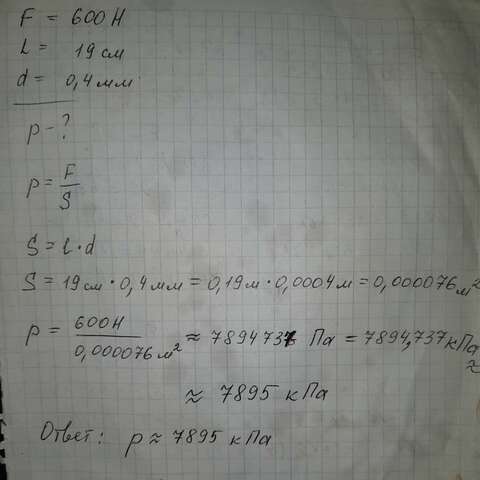 F = 600 Н
L = 19 см
d = 0,4 мм
p - ?
p = F/S
S = l · d
S = 19 см · 0,4 мм = 0,19 м · 0,0004 м = 0,000076 м²
p = 600 Н / 0,000076 м² ≈ 7894737 Па = 7894,737 кПа ≈
≈ 7895 кПа
Ответ: p ≈ 7895 кПа